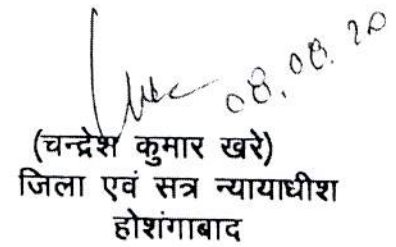 08.08.20
(चन्द्रेश कुमार खरे)
जिला एवं सत्र न्यायाधीश
होशंगाबाद